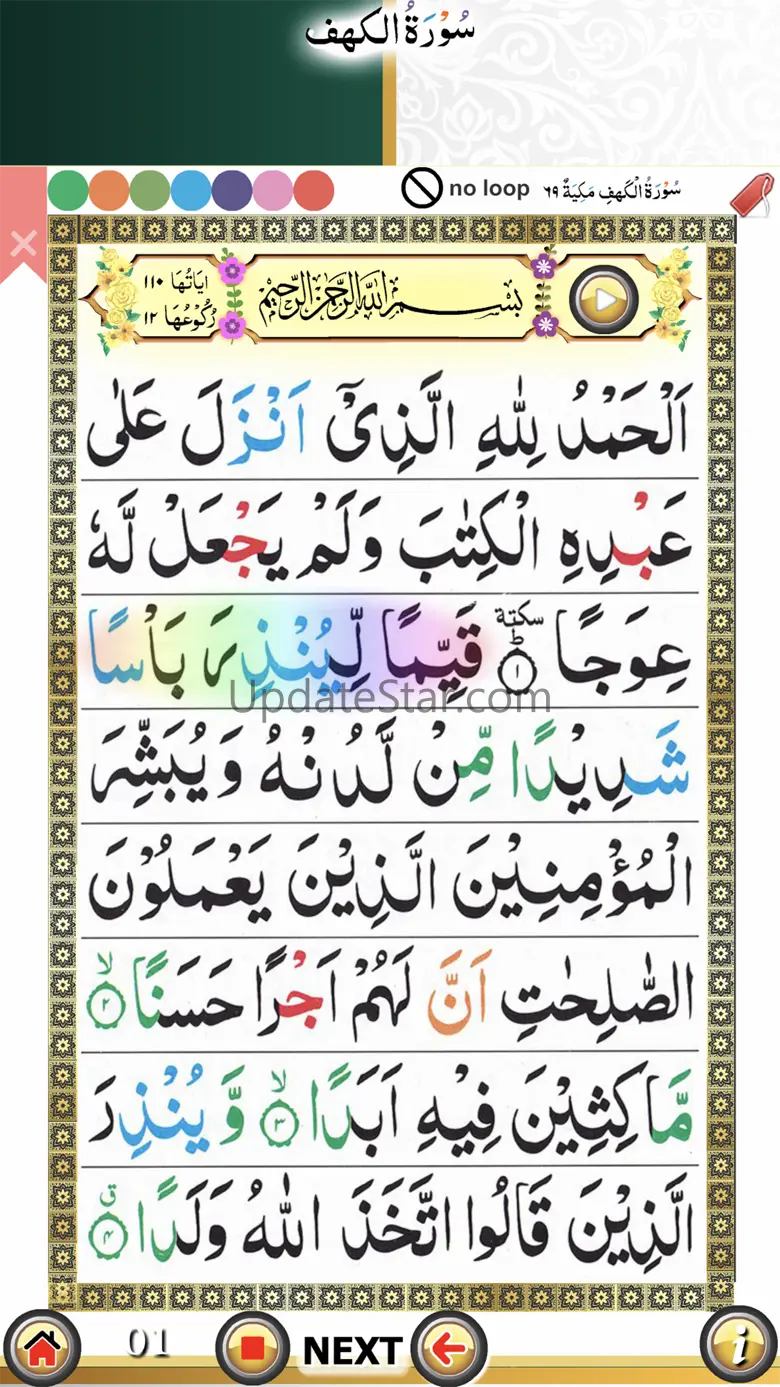 سُوْرَةُ الكهف
no loop
سُوْرَةُ الْكَهْفِ مَكِيَةٌ ٦٩
اٰيَاتُهَا ١١٠
رُكُوْعُهَا ١٢
بِسْمِ اللهِ الرَّحْمٰنِ الرَّحِيْمِ
اَلْحَمْدُ لِلّٰهِ الَّذِىْۤ اَنْزَلَ عَلٰى
عَبْدِهِ الْكِتٰبَ وَلَمْ يَجْعَلْ لَّهٗ
عِوَجًا ؕ سكتة ۝١ قَيِّمًا لِّيُنْذِرَ بَاْسًا
UpdateStar.com
شَدِيْدًا مِّنْ لَّدُنْهُ وَيُبَشِّرَ
الْمُؤْمِنِيْنَ الَّذِيْنَ يَعْمَلُوْنَ
الصّٰلِحٰتِ اَنَّ لَهُمْ اَجْرًا حَسَنًا ۙ۝٢
مَّاكِثِيْنَ فِيْهِ اَبَدًا ۙ۝٣ وَّيُنْذِرَ
الَّذِيْنَ قَالُوا اتَّخَذَ اللهُ وَلَدًا ۝٤ ق
01
NEXT
i